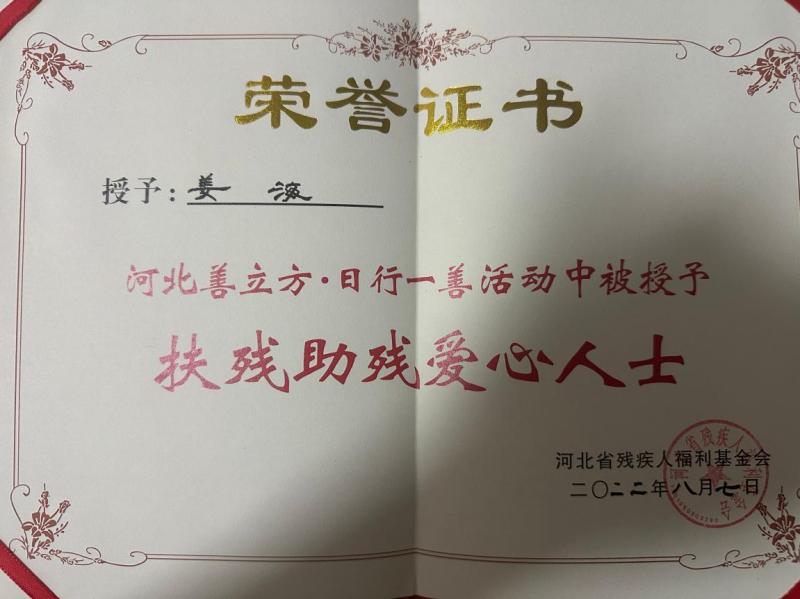 荣誉证书
授予:姜 海
河北善立方·日行一善活动中被授予
扶残助残爱心人士
河北省残疾人福利基金会
二〇二二年八月七日